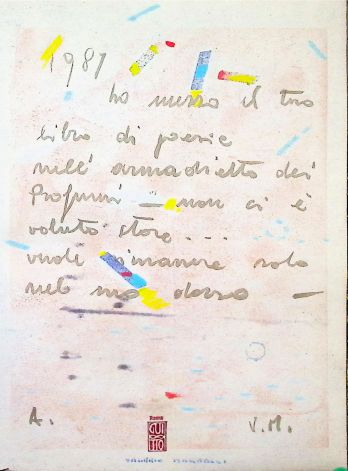 1981
ho messo il tuo
libro di poesie
nell' armadietto dei
Profumi — non ci è
voluto stare...
vuole rimanere solo
nel mio —
A. V.M.